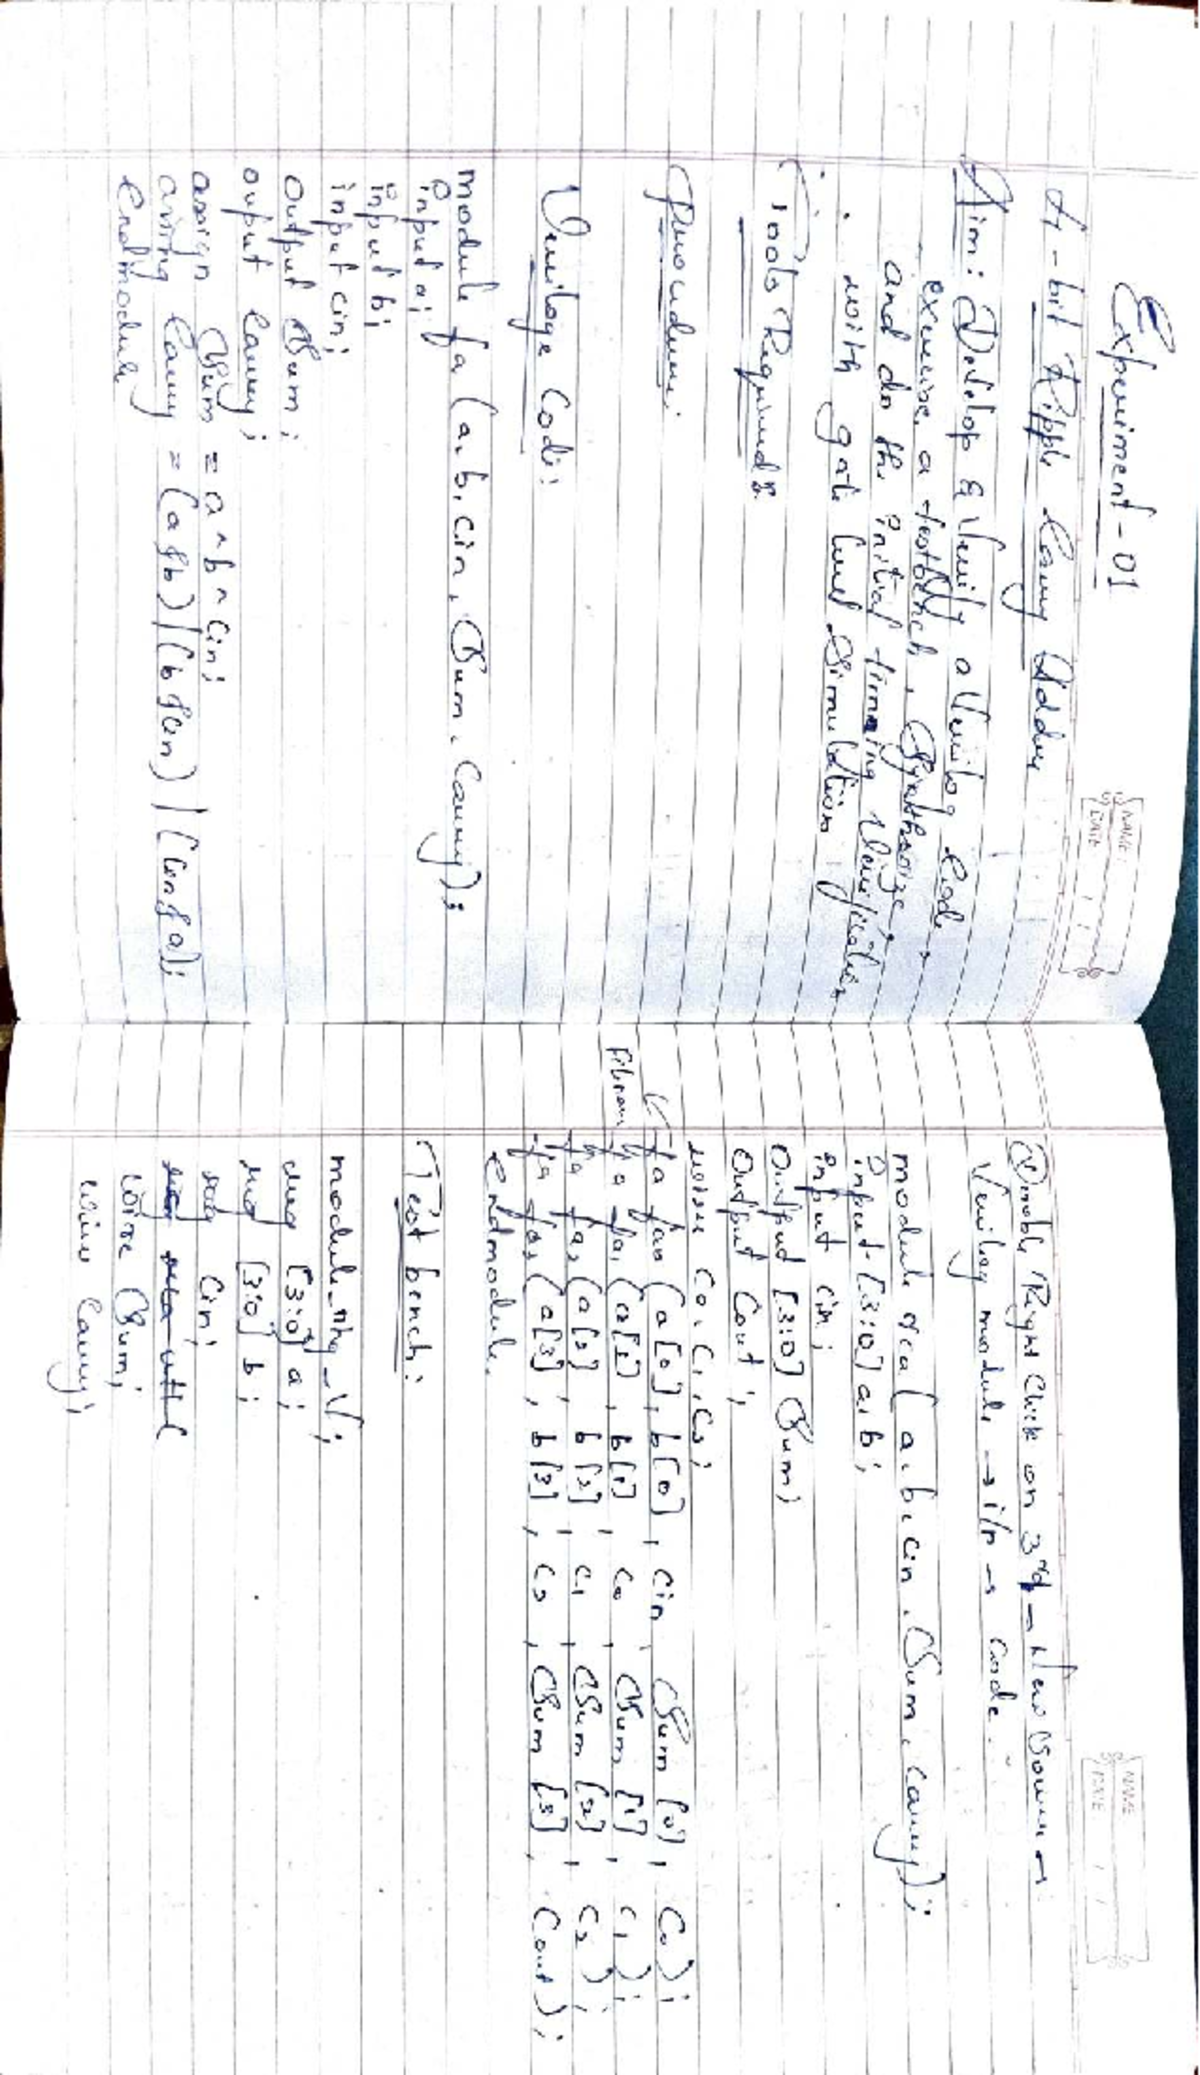 Experiment-01
NAME:
DATE
4-bit Ripple Carry Adder
Aim: Develop & Verify a Verilog Code
exercise a testbench, Synthesize,
and do the initial timing Verification
with gate level Simulation
Tools Required:
Procedure:
Veriloge Code:
module fa (a, b, cin, Sum, Carry);
input a;
input b;
input cin;
output Sum;
output Carry;
assign Sum = a ^ b ^ Cin;
assing Carry = (a&b) | (b&Cin) | (Cin&a);
Endmodule
NAME
DATE
Double Right Click on 3rd → New Source →
Verilog module → i/p → code.
module rca( a, b, cin, Sum, carry);
input [3:0] a, b;
input cin;
output [3:0] Sum;
output Cout;
wire C0, C1, C2;
fa fa0 (a[0], b[0], cin, Sum[0], C0);
fa fa1 (a[1], b[1], C0, Sum[1], C1);
fa fa2 (a[2], b[2], C1, Sum[2], C2);
fa fa3 (a[3], b[3], C2, Sum[3], Cout);
endmodule.
Test bench:
reg [3:0] a;
reg [3:0] b;
reg Cin;
wire Sum;
wire Carry;